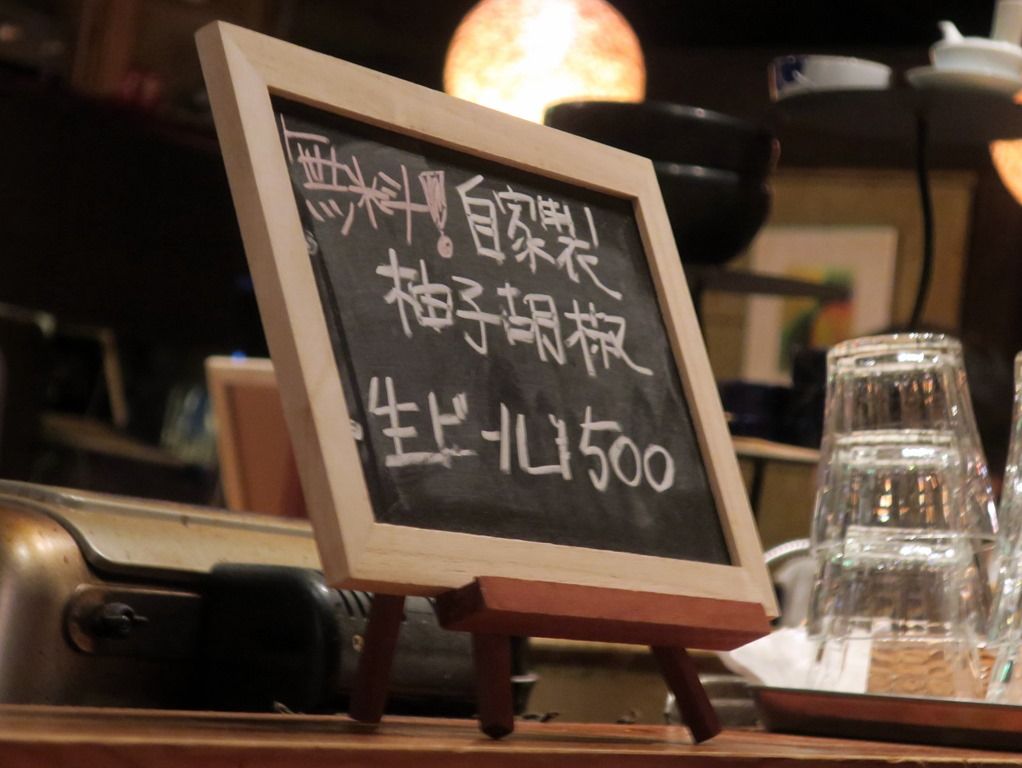 無料! 自家製
柚子胡椒
生ビール ¥500